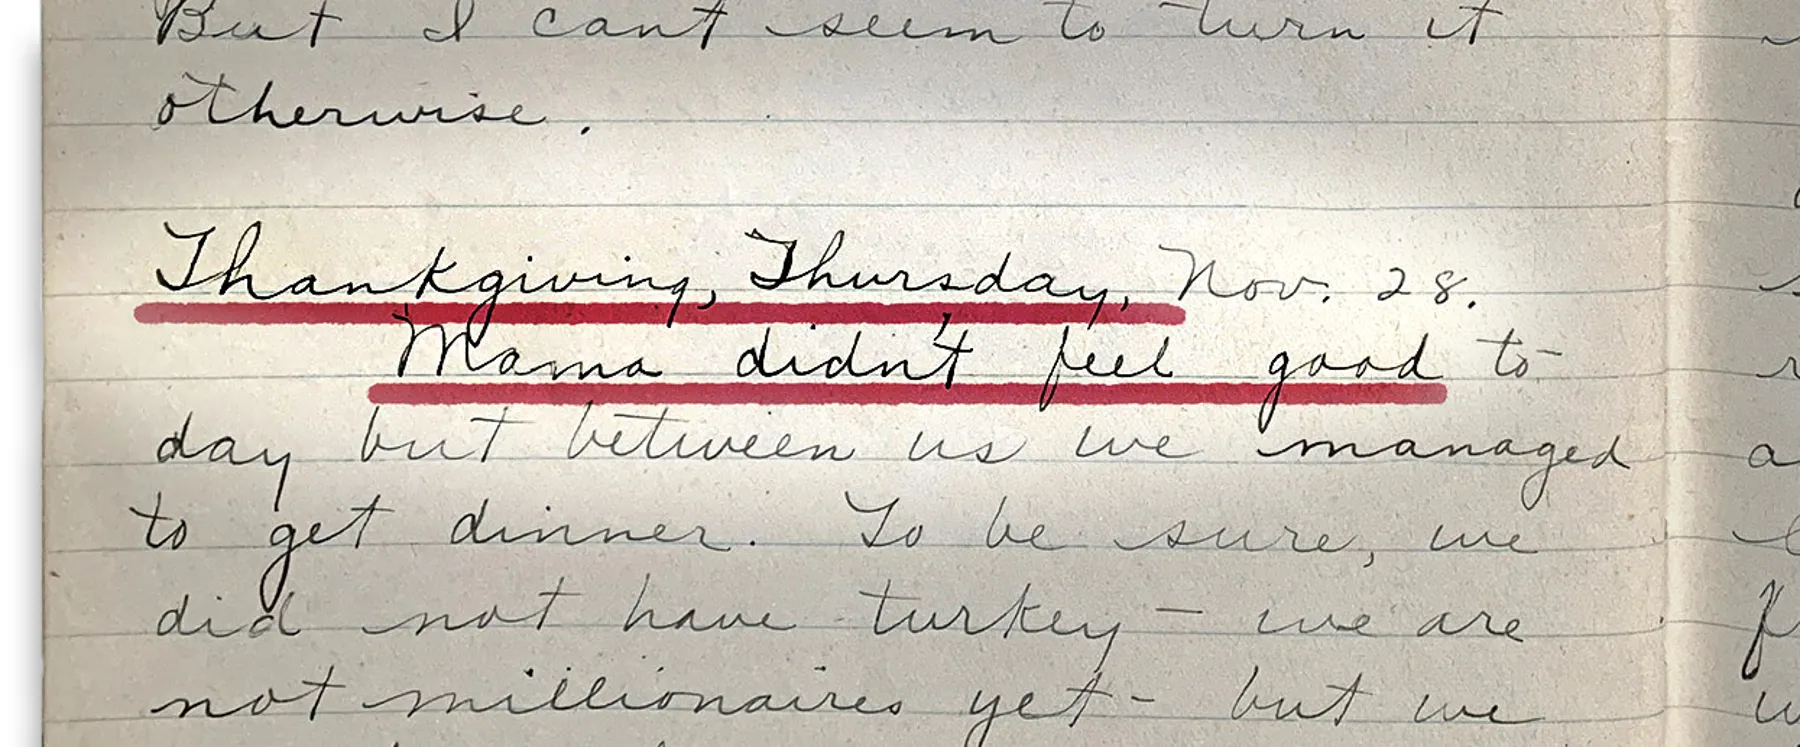 But I can't seem to turn it
otherwise.
Thankgiving, Thursday, Nov. 28.
Mama didn't feel good to-
day but between us we managed
to get dinner. To be sure, we
did not have turkey — we are
not millionaires yet - but we